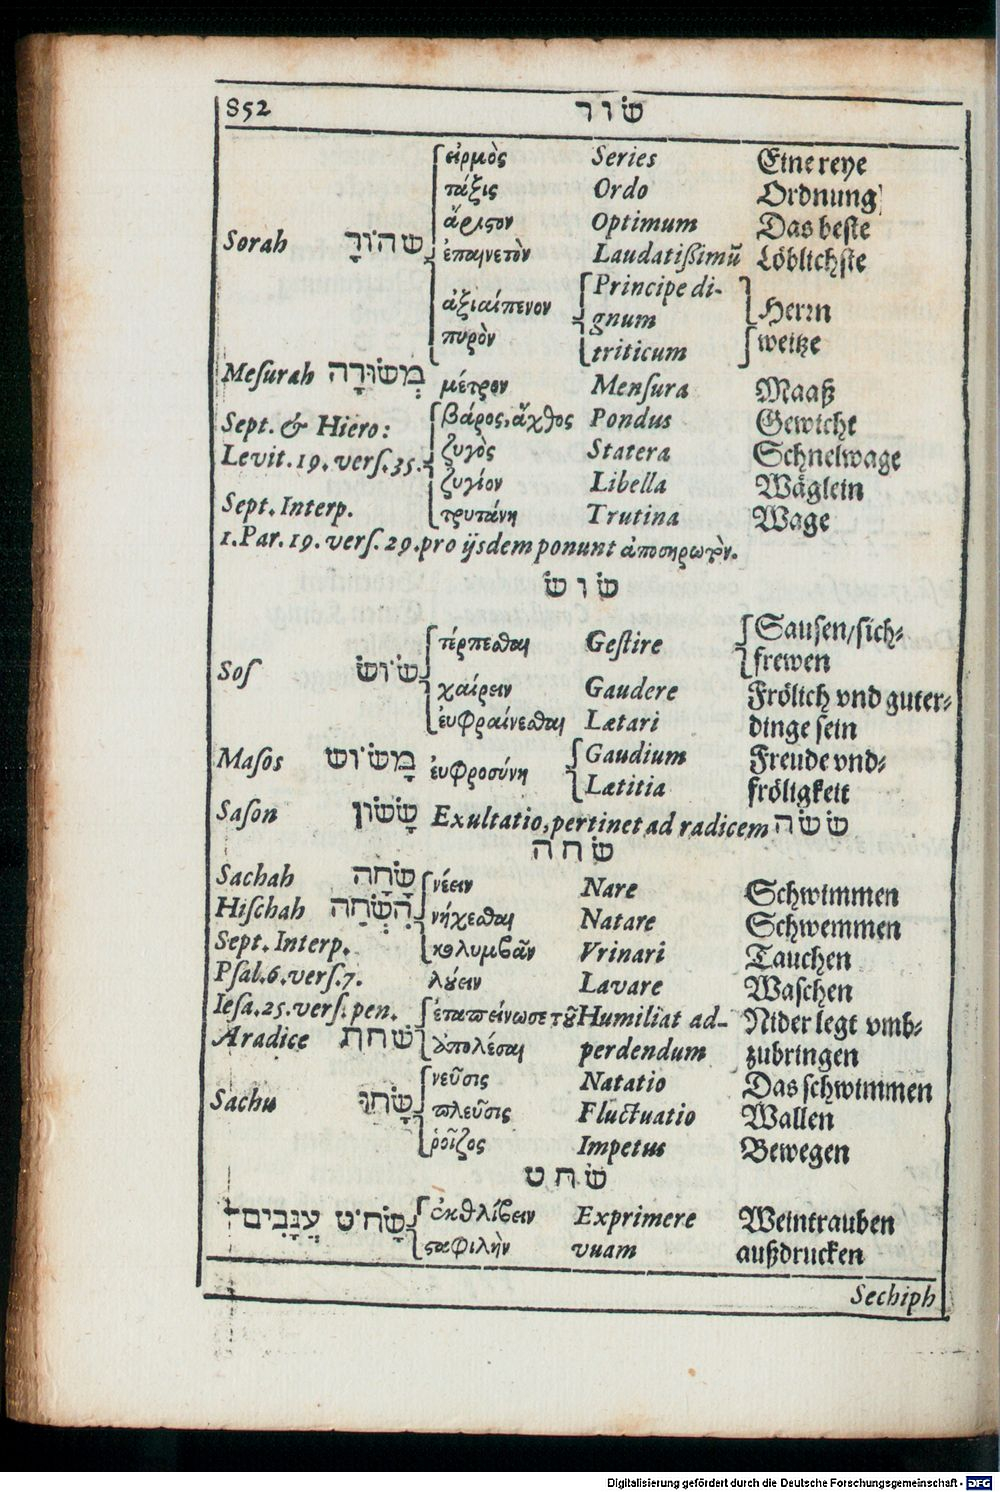 852 שׂור
εἱρμὸς Series Eine reye
τάξις Ordo Ordnung
ἄριστον Optimum Das beste
Sorah ἐπαινετὸν Laudatißimũ Löblichste
ἀξιαίπενον Principe di- Herrn
gnum
πυρὸν triticum weitze
Mesurah מְשׂוּרָה μέτρον Mensura Maaß
Sept. & Hiero: βάρος, ἄχθος Pondus Gewicht
Levit. 19. vers. 35. ζυγὸς Statera Schnelwage
ζυγίον Libella Wäglein
Sept. Interp. τρυτάνη Trutina Wage
1. Par. 19. vers. 29. pro ijsdem ponunt
שׂושׂ
τέρπεσθαι Gestire Sausen/sich-
frewen
Sos שׂוֹשׂ
χαίρειν Gaudere Frölich vnd guter-
εὐφραίνεσθαι Lætari dinge sein
Masos מָשׂוֹשׂ εὐφροσύνη Gaudium Freude vnd-
Lætitia fröligkeit
Sason שָׂשׂוֹן Exultatio, pertinet ad radicem שׂשׂה
שׂחה
Sachah שָׂחָה νέειν Nare Schwimmen
Hischah הִשְׂחָה νήχεσθαι Natare Schwemmen
Sept. Interp. κολυμβᾶν Vrinari Tauchen
Psal. 6. vers. 7. λούειν Lavare Waschen
Iesa. 25. vers. pen. ἐταπείνωσε τοῦ Humiliat ad- Nider legt vmb-
A radice שׁחת ἀπολέσαι perdendum zubringen
νεῦσις Natatio Das schwimmen
Sachu שָׂחוּ πλεῦσις Fluctuatio Wallen
ῥοῖζος Impetus Bewegen
שׂחט
שָׂחֹט עֲנָבִים ἐκθλίβειν Exprimere Weintrauben
σταφιλὴν vuam außdrucken
Sechiph
Digitalisierung gefördert durch die Deutsche Forschungsgemeinschaft - DFG